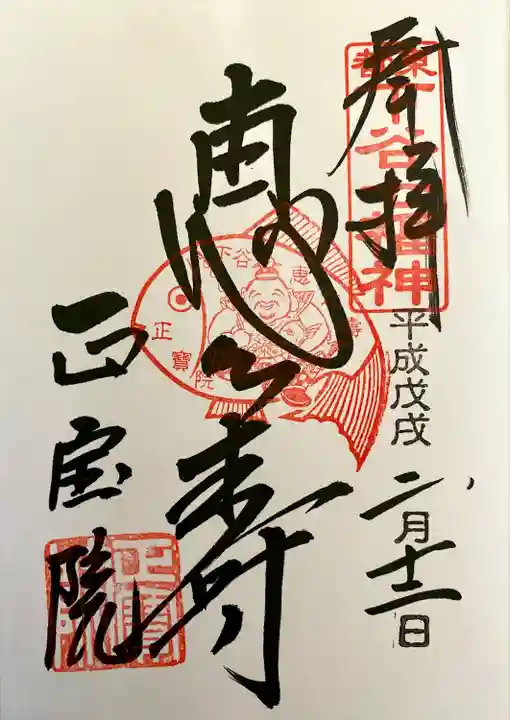 奉拝
東都
下谷七福神
平成戊戌
二月十二日
恵比寿
下谷
恵
正寶院
正宝院